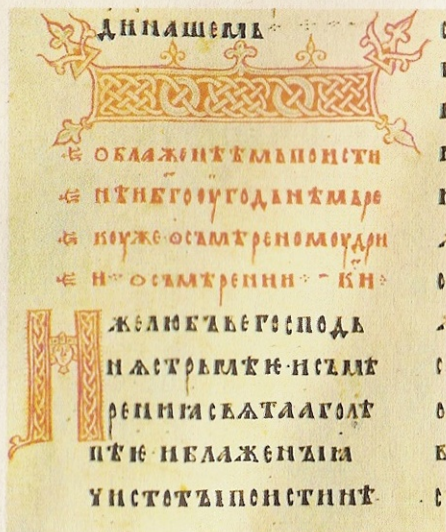 динашемь
облаженѣѣмьпоисти
нѣнбг҃ооугодьнѣмьре
коуже·осъмѣреномоудри
и·осъмѣрении·к҃и·
желюбъвегосподь
нѧстрьмлѣѥ·исъмѣ
рениꙗсвѧтааголѣ
пѣѥ·иблаженꙑꙗ
чистотꙑпоистинѣ